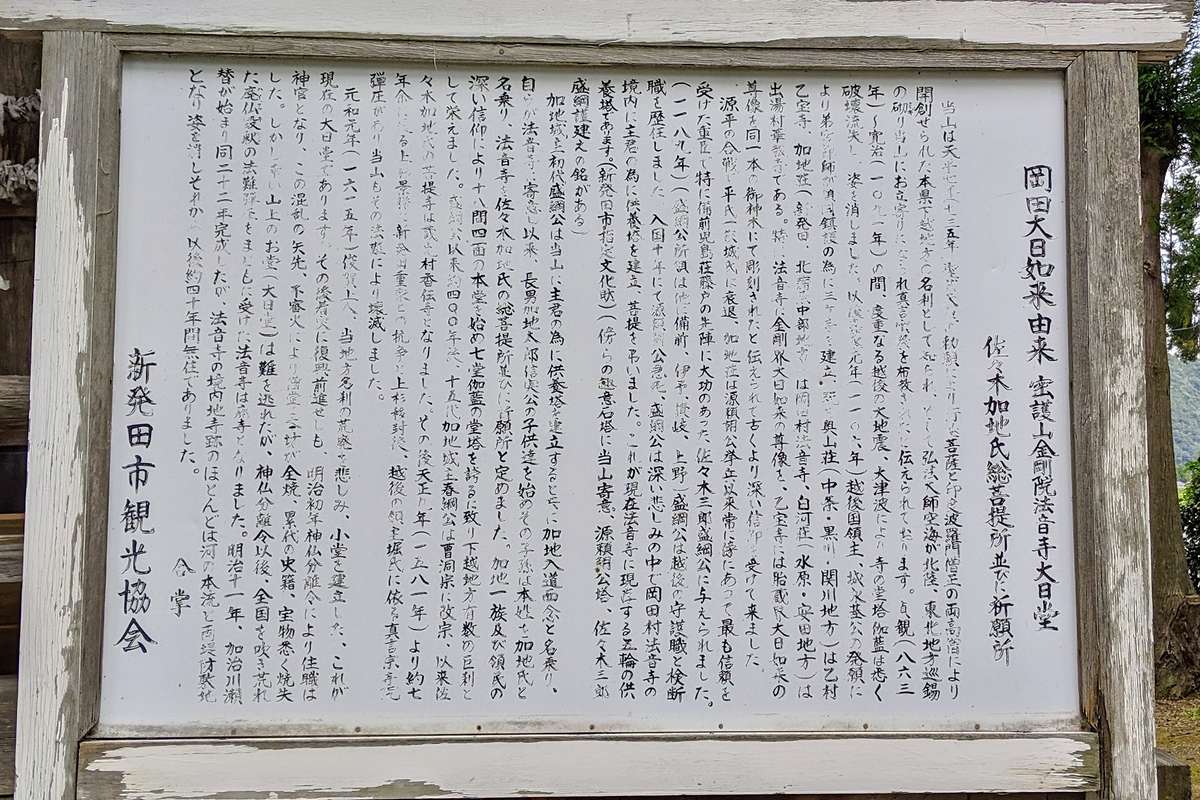 岡田大日如来由来 密護山金剛院法音寺大日堂
佐々木加地氏総菩提所並びに祈願所
当山は天平七年 勅願により行基菩薩と印度波羅門僧正の両高僧により
開創せられた本県下越地方の名刹として 弘法大師空海が北陸、東北地方巡錫
の砌り当山にお立寄りに 伝えられております。貞観(八六三
年)〜寛治(一〇九 年)の間、度重なる越後の大地震、大津波により寺の堂塔伽藍は悉く
破壊流失し、姿を消しました。以後 元年(一一 六年)越後国領主、城永基公の発願に
より 鎮護の為に三ヶ寺を建立 奥山荘(中条・黒川・関川地方)は乙村
乙宝寺、加地荘(新発田、北蒲 中部地方)は岡田村法音寺、白河荘(水原・安田地方)は
出湯村華報寺である。特に法音寺に金剛界大日如来の尊像を、乙宝寺には胎蔵界大日如来の
尊像を同一本の御神木にて彫刻されたと伝えられて古くより深い信仰を受けて来ました。
源平の合戦で平氏一族城氏は衰退、加地荘は源頼朝公挙立以来常に傍にあって最も信頼を
受けた重臣で特に備前児島荘藤戸の先陣に大功のあった佐々木三郎盛綱公に与えられました。
(一一八九年)(盛綱公所領は他に備前、伊予、讃岐、上野)盛綱公は越後の守護職と検断
職を歴任しました。入国十年にて源頼朝公急死、盛綱公は深い悲しみの中で岡田村法音寺の
境内に主君の為に供養塔を建立、菩提を弔いました。これが現在法音寺に現存する五輪の供
養塔であります。(新発田市指定文化財)(傍らの趣意石塔に当山寄意、源頼朝公塔、佐々木三郎
盛綱謹建之の銘がある)
加地城主初代盛綱公は当山に主君の為に供養塔を建立すると共に加地入道西念と名乗り、
自らが法音寺に寄意し以来、長男加地太郎信実公の子供達を始めその子孫は本姓を加地氏と
名乗り、法音寺を佐々木加地氏の総菩提所並びに祈願所と定めました。加地一族及び領民の
深い信仰により十八間四面の本堂を始め七堂伽藍の堂塔を誇るに致り下越地方有数の巨刹と
して栄えました。盛綱公以来約四〇〇年後、十五代加地城主春綱公は曹洞宗に改宗、以来佐
々木加地氏の菩提寺は 村香伝寺となりました。その後天正九年(一五八一年)より約七
年余に る上杉景勝と新発田重家との抗争と上杉移封後、越後の領主堀氏に依る真言宗
弾圧があり当山もその法難により壊滅しました。
元和元年(一六一五年)俊 上人、当地方名刹の荒廃を悲しみ、小堂を建立した、これが
現在の大日堂であります。その後着々に復興前進せしも、明治初年神仏分離令により住職は
神官となり、この混乱の矢先、不審火により 全焼、累代の史籍、宝物悉く焼失
した。しかし幸い山上のお堂(大日堂)は難を逃れたが、神仏分離令以後、全国を吹き荒れ
た廃仏毀釈の法難 をまともに受けた法音寺は廃寺となりました。明治十一年、加治川瀬
替が始まり同二十二年完成したが、法音寺の境内地寺跡のほとんどは河の本流と両堤防敷地
となり姿を消しそれから以後約四十年間無住でありました。
合掌
新発田市観光協会